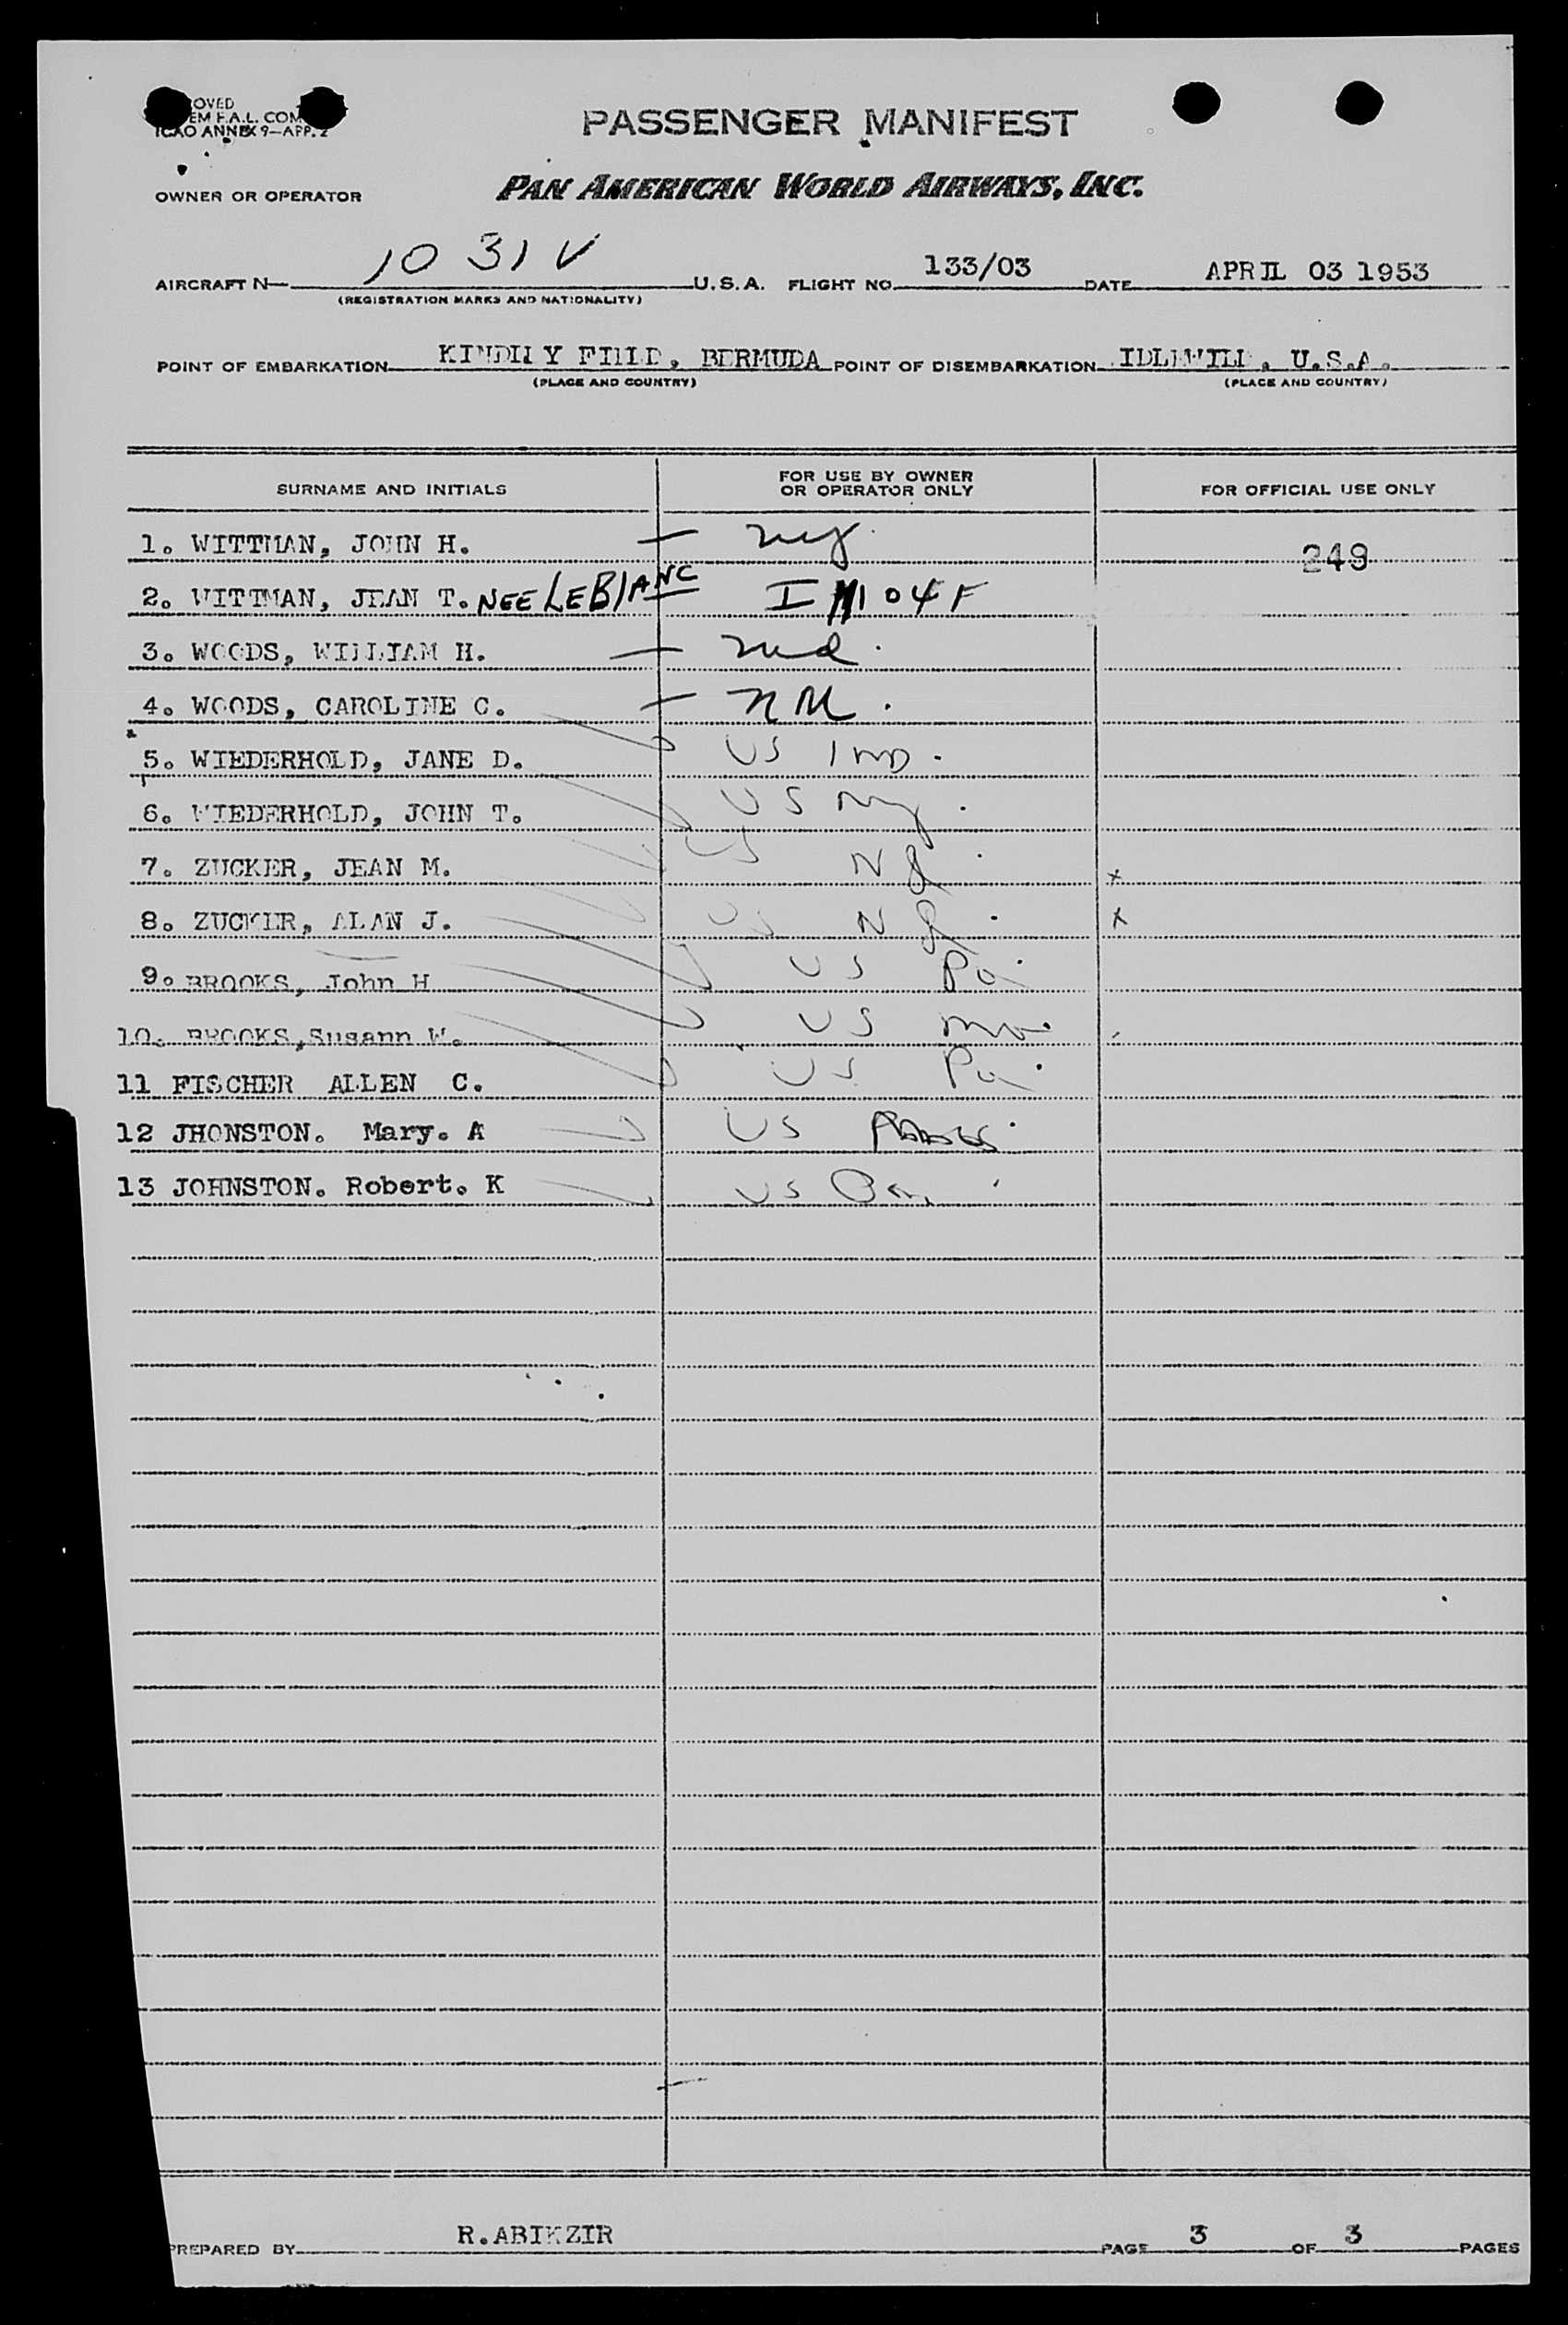 OVED
EM F.A.L. COM
ICAO ANNEX 9—APP. 2
PASSENGER MANIFEST
OWNER OR OPERATOR PAN AMERICAN WORLD AIRWAYS, INC.
AIRCRAFT N 1031V U.S.A. FLIGHT NO. 133/03 DATE APRIL 03 1953
(REGISTRATION MARKS AND NATIONALITY)
POINT OF EMBARKATION KINDLEY FIELD, BERMUDA POINT OF DISEMBARKATION IDLEWILD, U.S.A.
(PLACE AND COUNTRY) (PLACE AND COUNTRY)
SURNAME AND INITIALS FOR USE BY OWNER OR OPERATOR ONLY FOR OFFICIAL USE ONLY
1. WITTMAN, JOHN H. — ny. 249
2. WITTMAN, JEAN T. NEE LEBlANC I M104F
3. WOODS, WILLIAM H. —
4. WOODS, CAROLINE C. —
5. WIEDERHOLD, JANE D. US Ind.
6. WIEDERHOLD, JOHN T. US Ny.
7. ZUCKER, JEAN M. US NJ. x
8. ZUCKER, ALAN J. US NJ. x
9. BROOKS, John H US Pa.
10. BROOKS, Susann W. US mo.
11 FISCHER ALLEN C. US Pa.
12 JHONSTON. Mary. A US
13 JOHNSTON. Robert. K US
PREPARED BY R.ABIKZIR PAGE 3 OF 3 PAGES